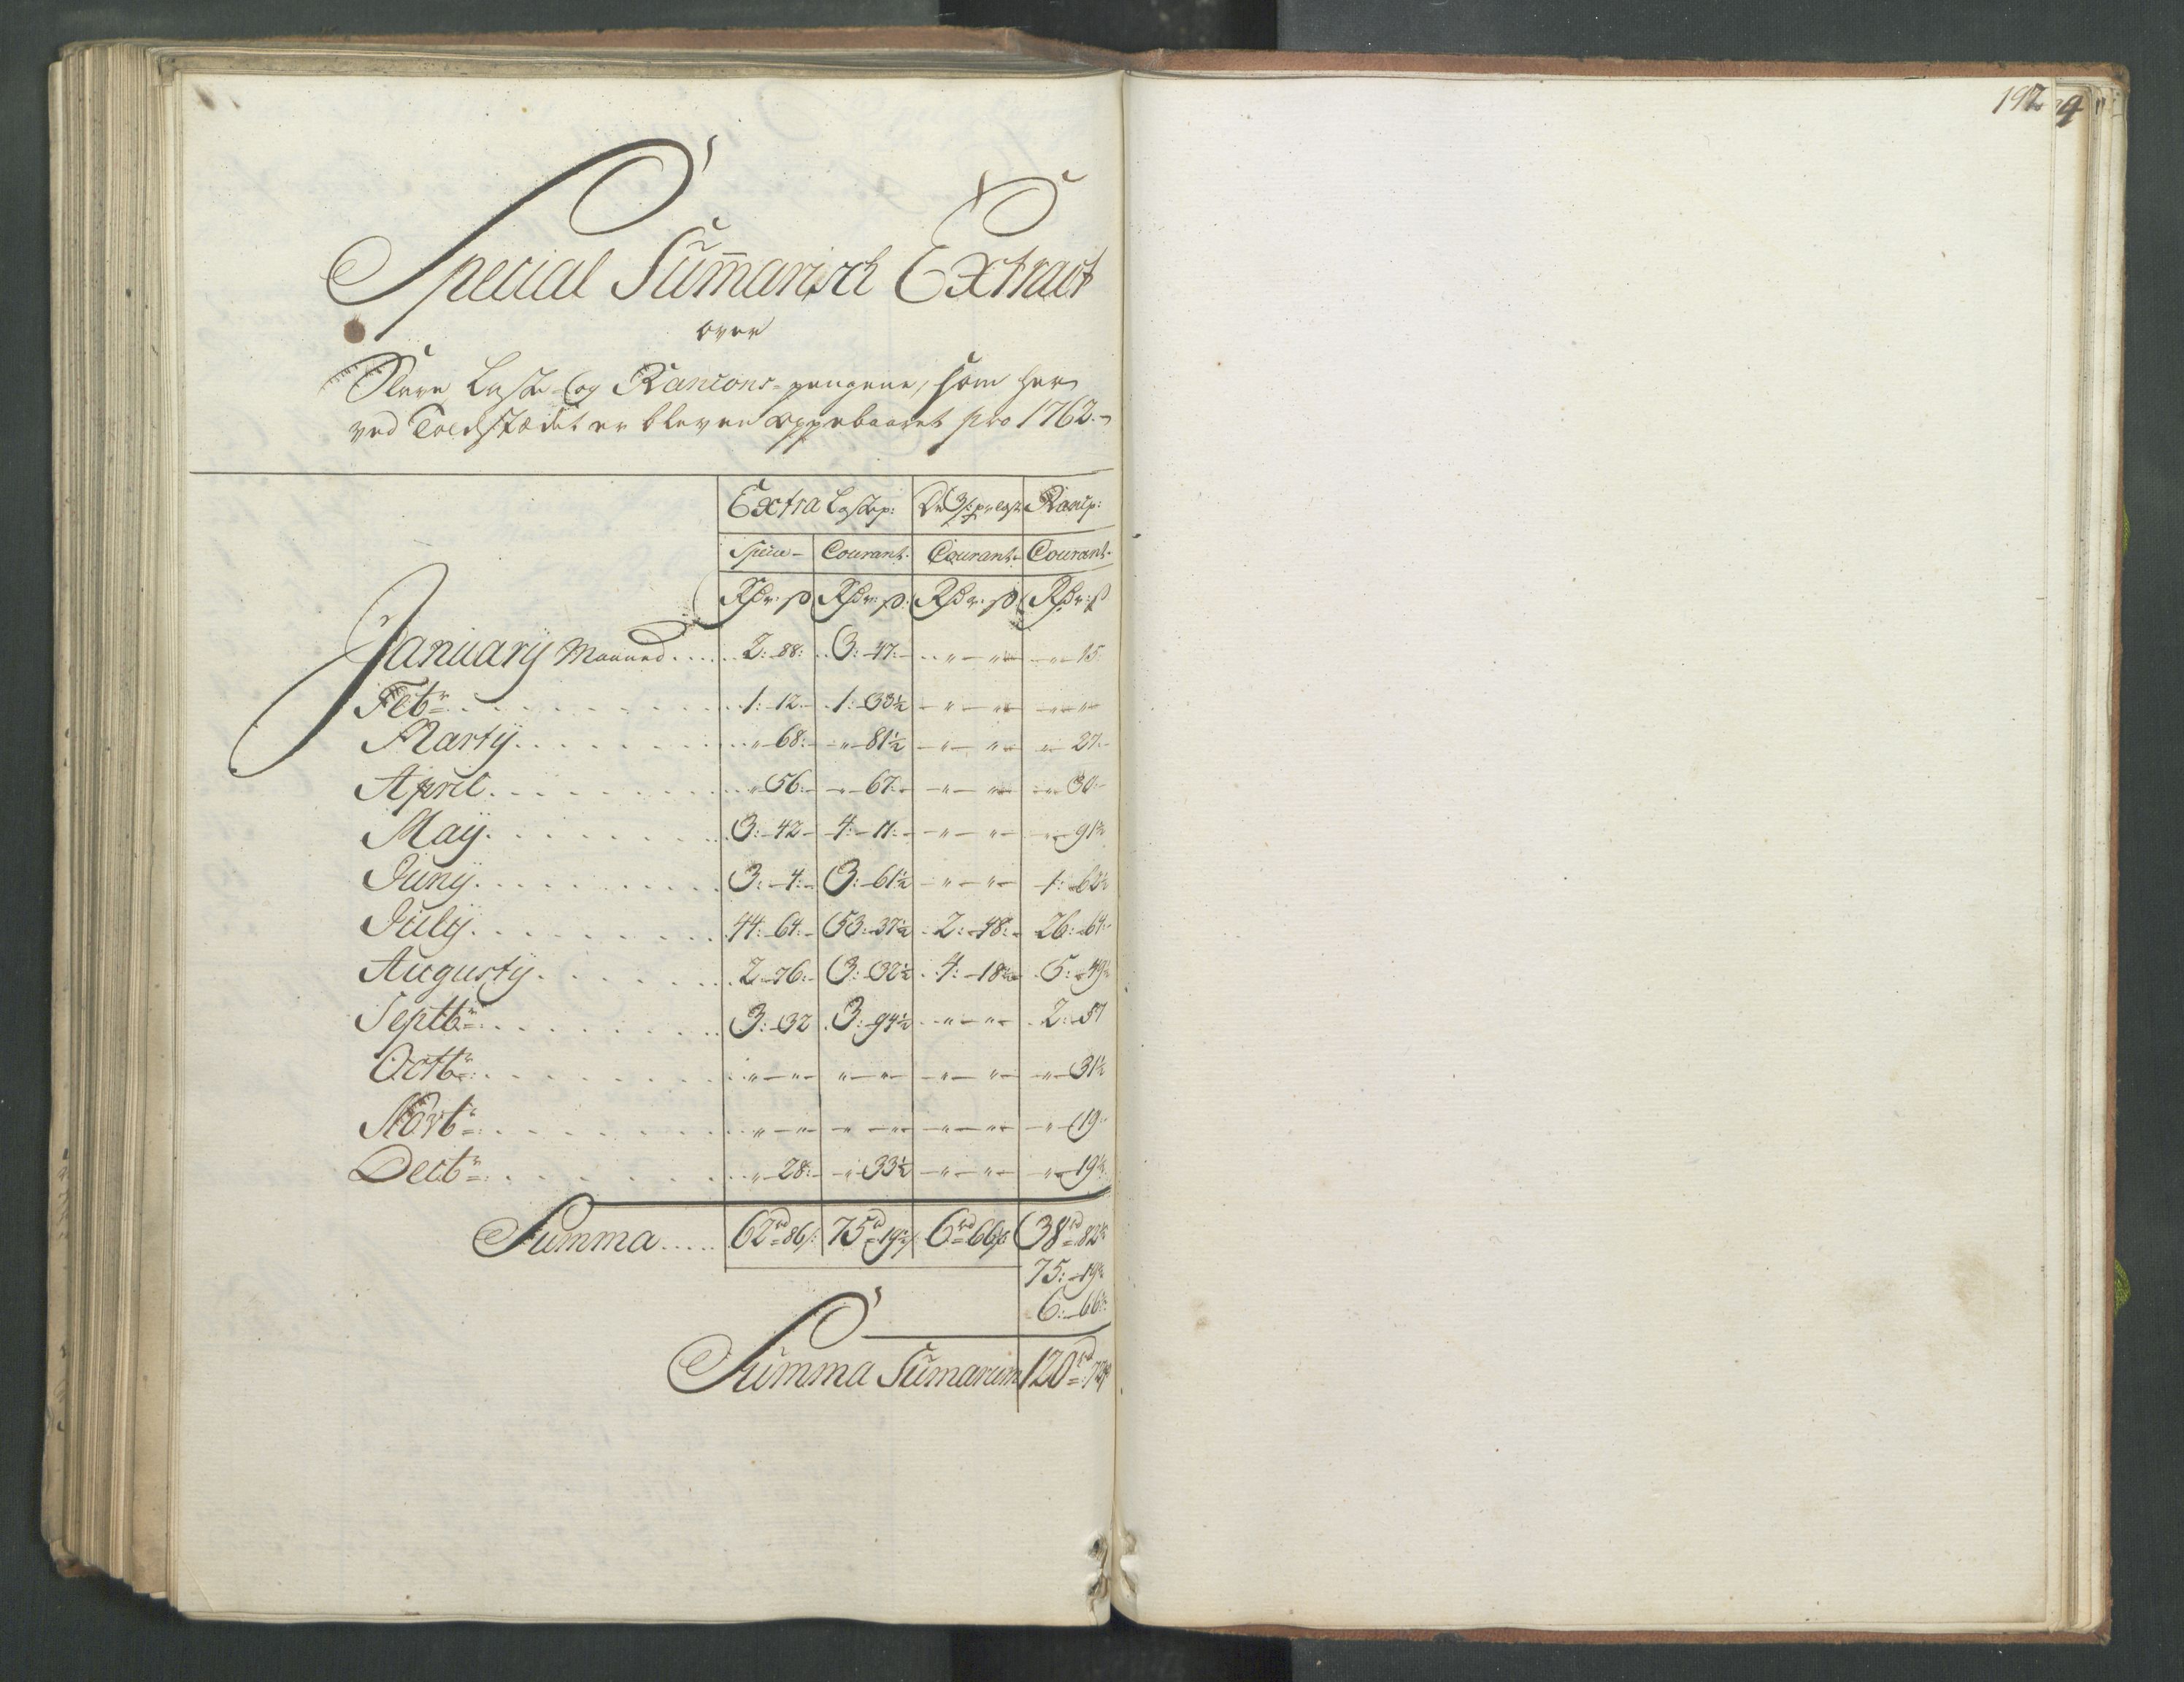 Special Summarisch Extract
over
Slave Laste og Rancons-pengene, som her
ved Toldstædet er bleven oppebaaret pro 1762.
Extra Lastep: De 3 s: pr læst Rancp:
Specie Courant. Courant. Courant.
Rdr: ß Rdr: ß Rdr: ß Rdr: ß
January Maaned..... 2: 88: 3: 47: " " " 15
Febr: 1: 12. 1: 33½ " " " "
Marty " 68: " 81½ " " " 27.
April " 56: " 67: " " " 30.
May 3: 42 4: 11: " " " 91½
Juny 3: 4: 3: 61½ " " 1: 62½
July 44: 64: 53: 37½ 2: 48: 26: 64
Augusty 2: 76: 3: 32½ 4: 18 5: 49½
Septbr: 3: 32 3: 94½ " " 2: 57
Octbr: " " " " " " " 31½
Novbr: " " " " " " " 19
Decbr: " 28: " 33½ " " " 19½
Summa..... 62rd 86ß: 75rd 19½ß 6rd 66ß 38rd 82½
75: 19½
6: 66
Summa Sumarum 120rd 72ß
192
4